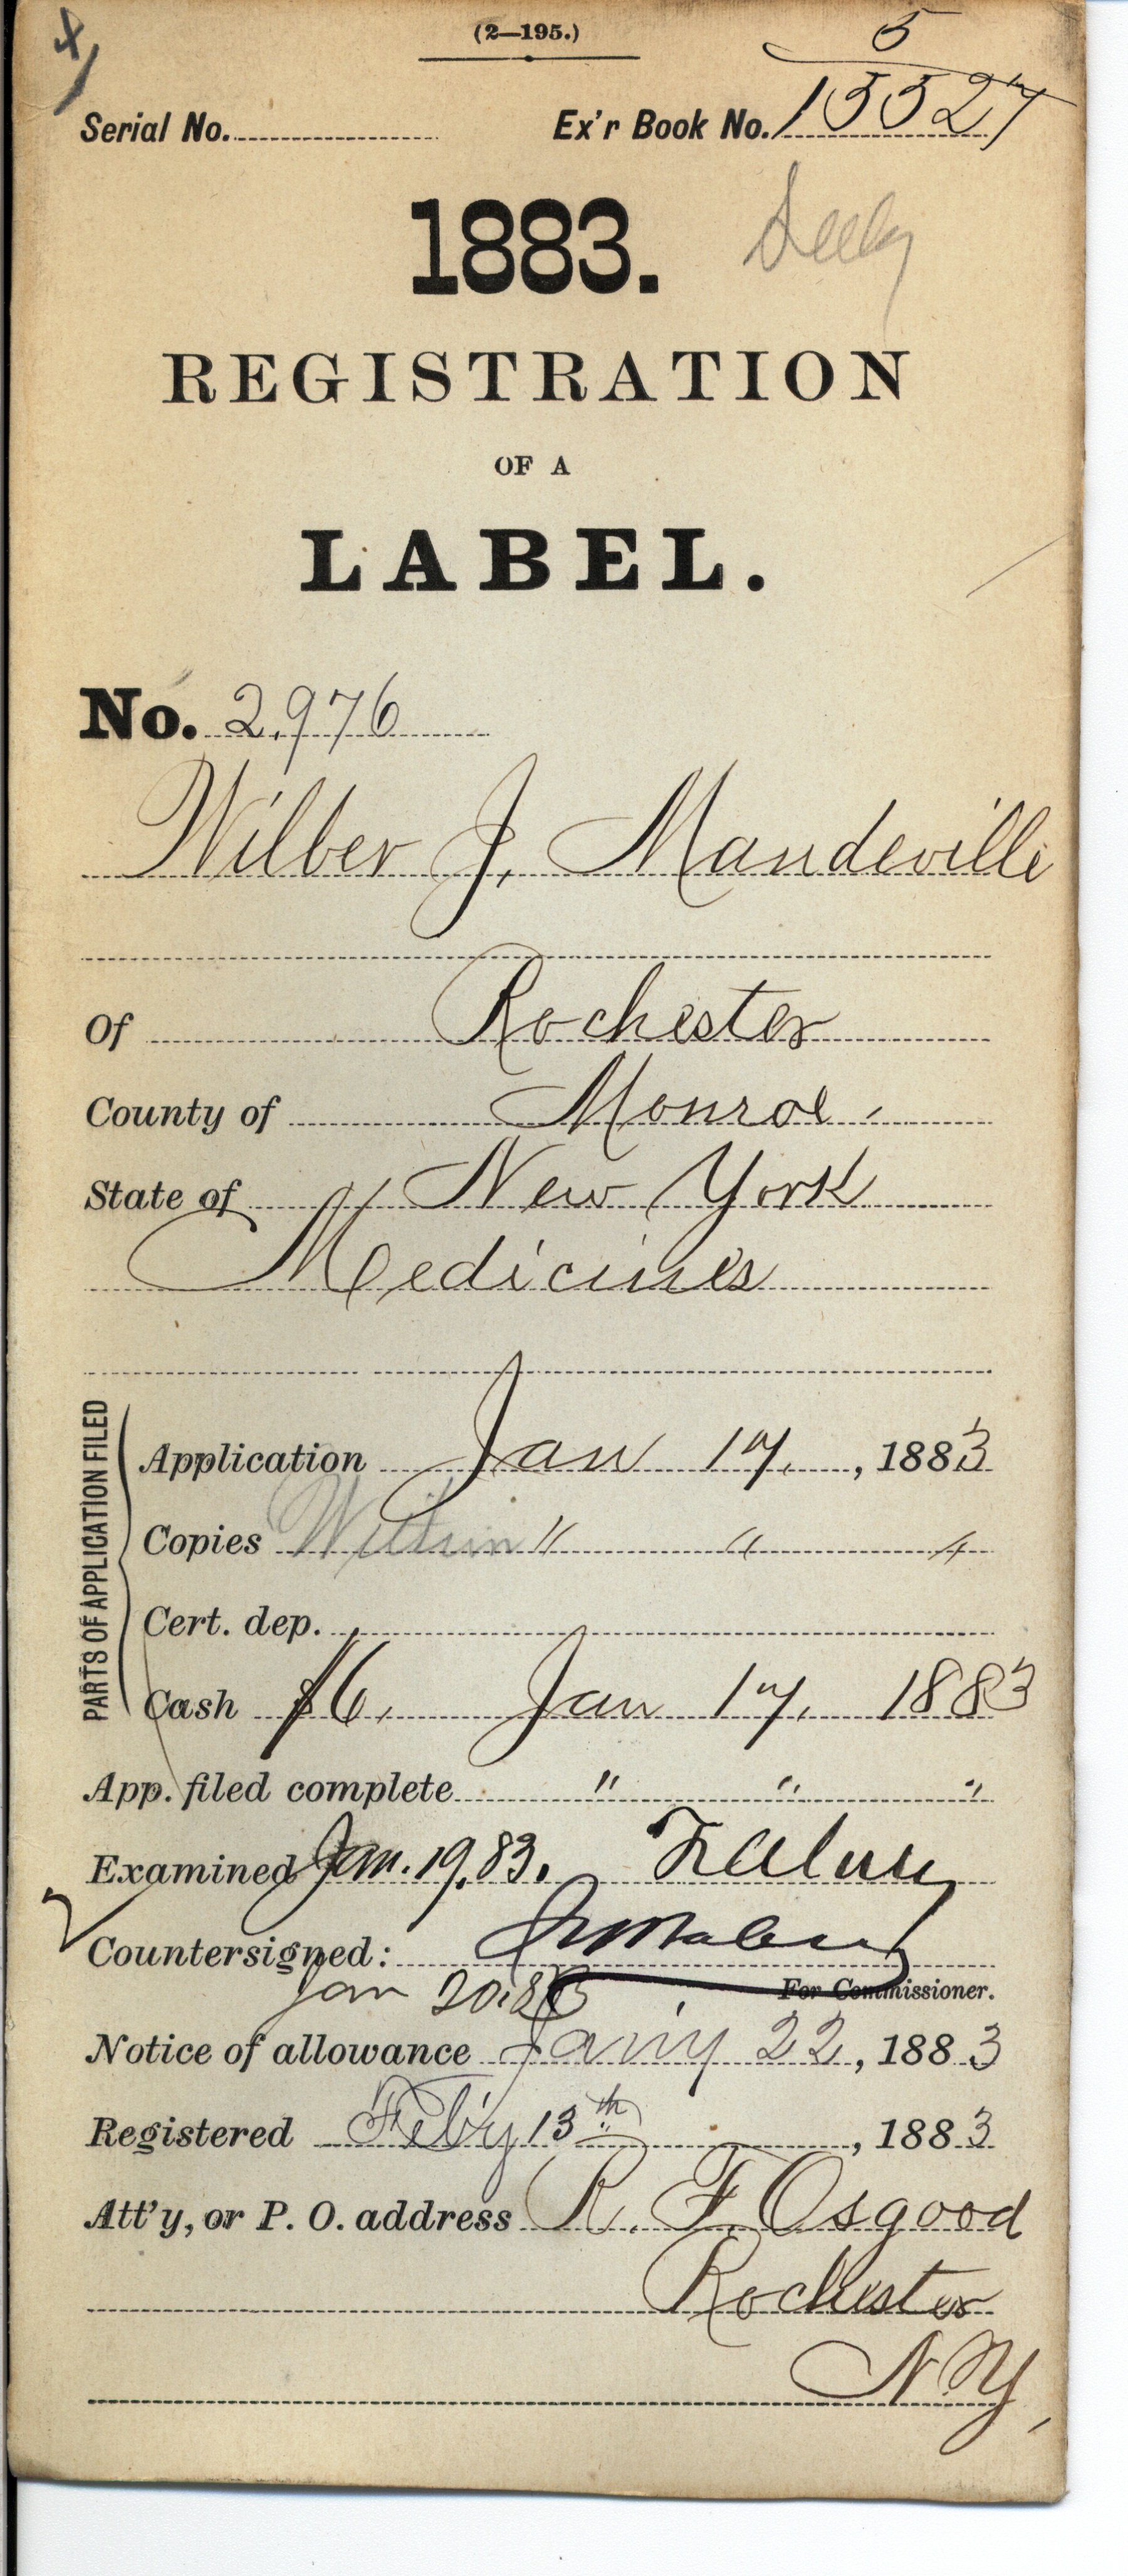 (2—195.)
5
Serial No. Ex'r Book No. 15527
1883.
Seely
REGISTRATION
OF A
LABEL.
No. 2,976
Wilber J. Mandeville
Of Rochester
County of Monroe.
State of New York
Medicines
PARTS OF APPLICATION FILED
Application Jan 17, , 1883
Copies " " "
Cert. dep.
Cash $6, Jan 17, 1883
App. filed complete " " "
Examined Jan. 19, 83.
Countersigned:
Jan 20, 83 For Commissioner.
Notice of allowance Jany 22, 1883
Registered Feb'y 13th, 1883
Att'y, or P. O. address R. F. Osgood
Rochester
N.Y,